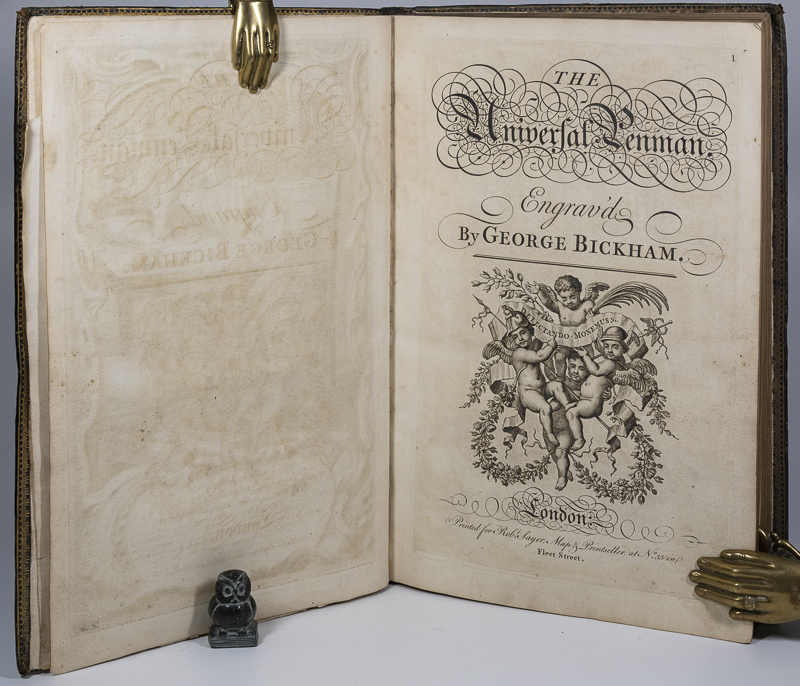 1
THE
Univerſal Penman.
Engrav'd
By GEORGE BICKHAM.
MONEMUS
London:
Printed for Rob.t Sayer, Map & Printseller, at No. 53 in
Fleet Street.